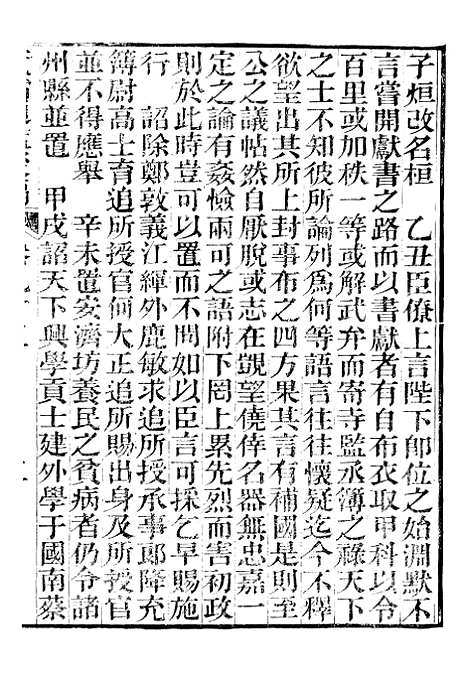 子烜改名桓　乙丑臣僚上言陛下卽位之始淵默不
言嘗開獻書之路而以書獻者有自布衣取甲科以令
百里或加秩一等或解武弁而寄寺監丞簿之祿天下
之士不知彼所論列爲何等語言往往懷疑迄今不釋
欲望出其所上封事布之四方果其言有補國是則至
公之議帖然自厭脫或志在覬望僥倖名器無忠嘉一
定之論有姦憸兩可之語附下罔上累先烈而害初政
則於此時豈可以置而不問如以臣言可採乞早賜施
行　詔除鄭敦義江緷外鹿敏求追所授承事郞降充
簿尉高士育追所授官何大正追所賜出身及所授官
並不得應舉　辛未置安濟坊養民之貧病者仍令諸
州縣並置　甲戌詔天下興學貢士建外學于國南蔡